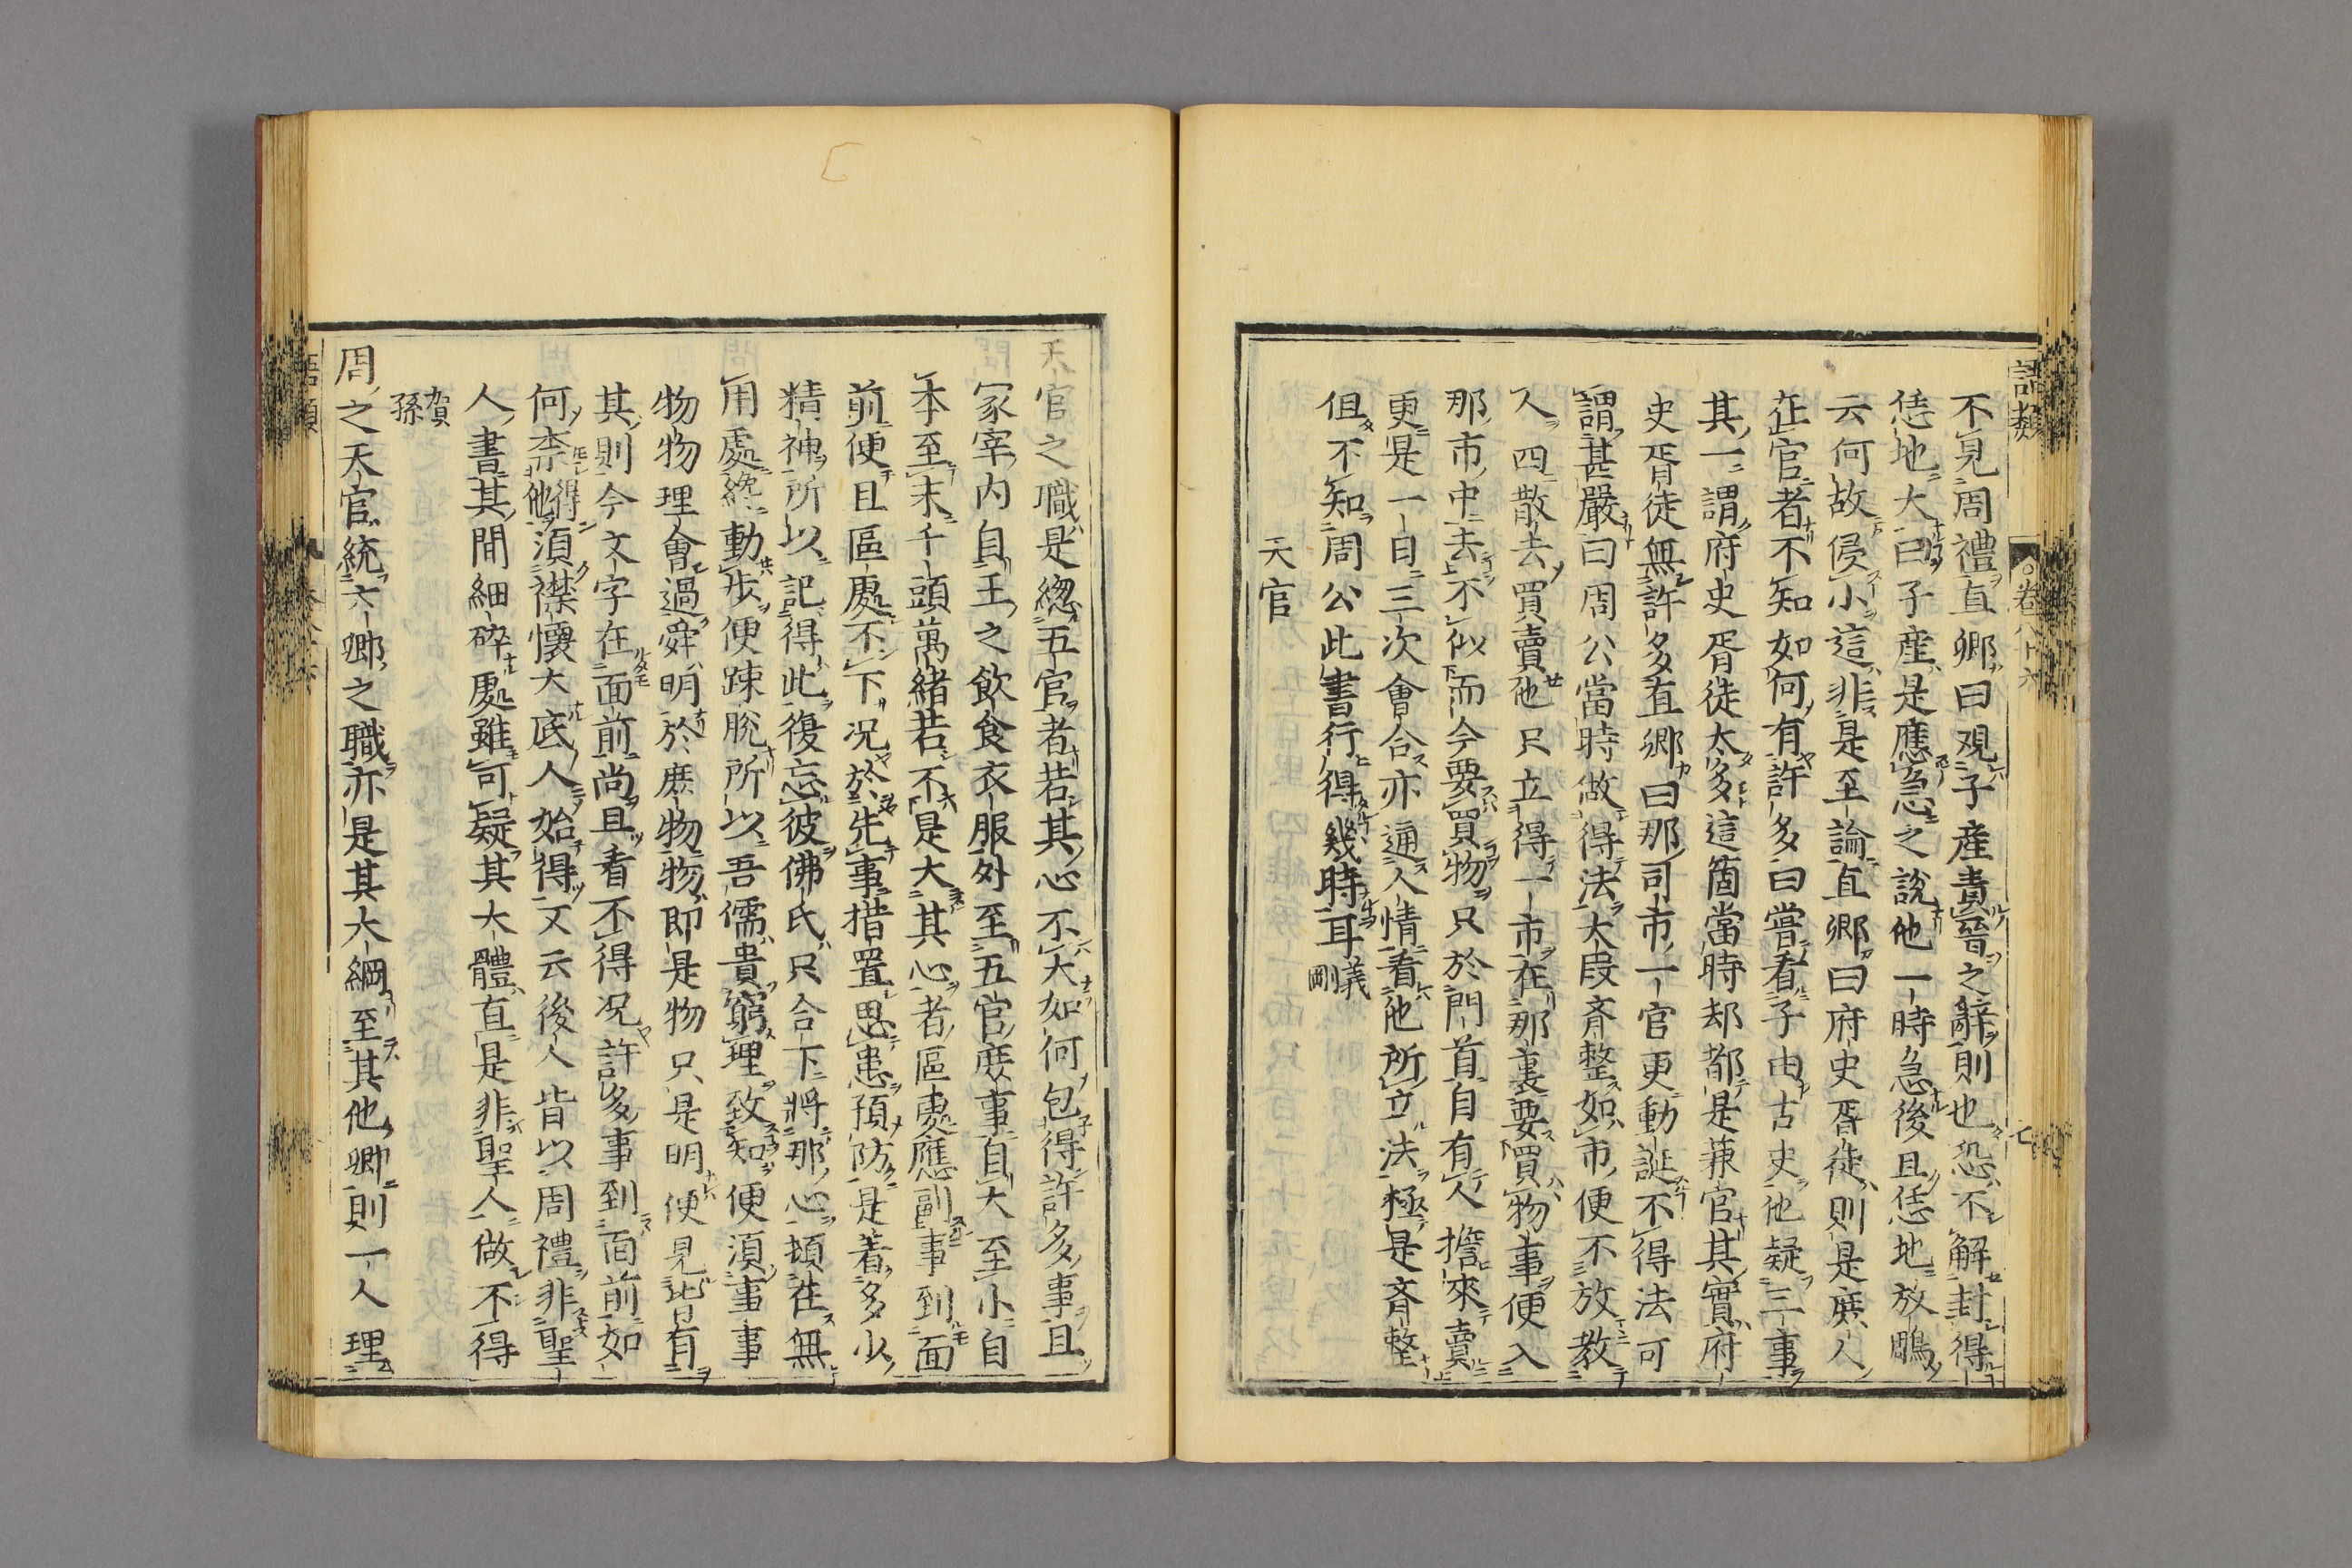 語類
卷八十六
七
不見周禮直卿曰觀子產責晉之辭則也恐不解封得
恁地大曰子產是應急之說他一時急後且恁地放鵰
云何故侵小這非是至論直卿曰府史胥徒則是庶人
在官者不知如何有許多曰嘗看子由古史他疑三事
其一謂府史胥徒太多這箇當時却都是兼官其實府
史胥徒無許多直卿曰那司市一官更動誕不得法可
謂甚嚴曰周公當時做得法大段齊整如市便不放教
人四散去買賣他只立得一市在那裏要買物事便入
那市中去不似而今要買物只於門首自有人擔來賣
更是一日三次會合亦通人情看他所立法極是齊整
但不知周公此書行得幾時耳義剛
天官
天官之職是總五官者若其心不大如何包得許多事且
冢宰內自王之飲食衣服外至五官庶事自大至小自
本至末千頭萬緒若不是大其心者區處應副事到面
前便且區處不下況於先事措置思患預防是著多少
精神所以記得此復忘彼佛氏只合下將那心頓在無
用處纔動步便踈脫所以吾儒貴窮理致知便須事事
物物理會過舜明於庶物物即是物只是明便見皆有
其則今文字在面前尚且看不得況許多事到面前如
何柰得他須襟懷大底人始得又云後人皆以周禮非聖
人書其間細碎處雖可疑其大體直是非聖人做不得
賀孫
周之天官統六卿之職亦是其大綱至其他卿則一人理
語類